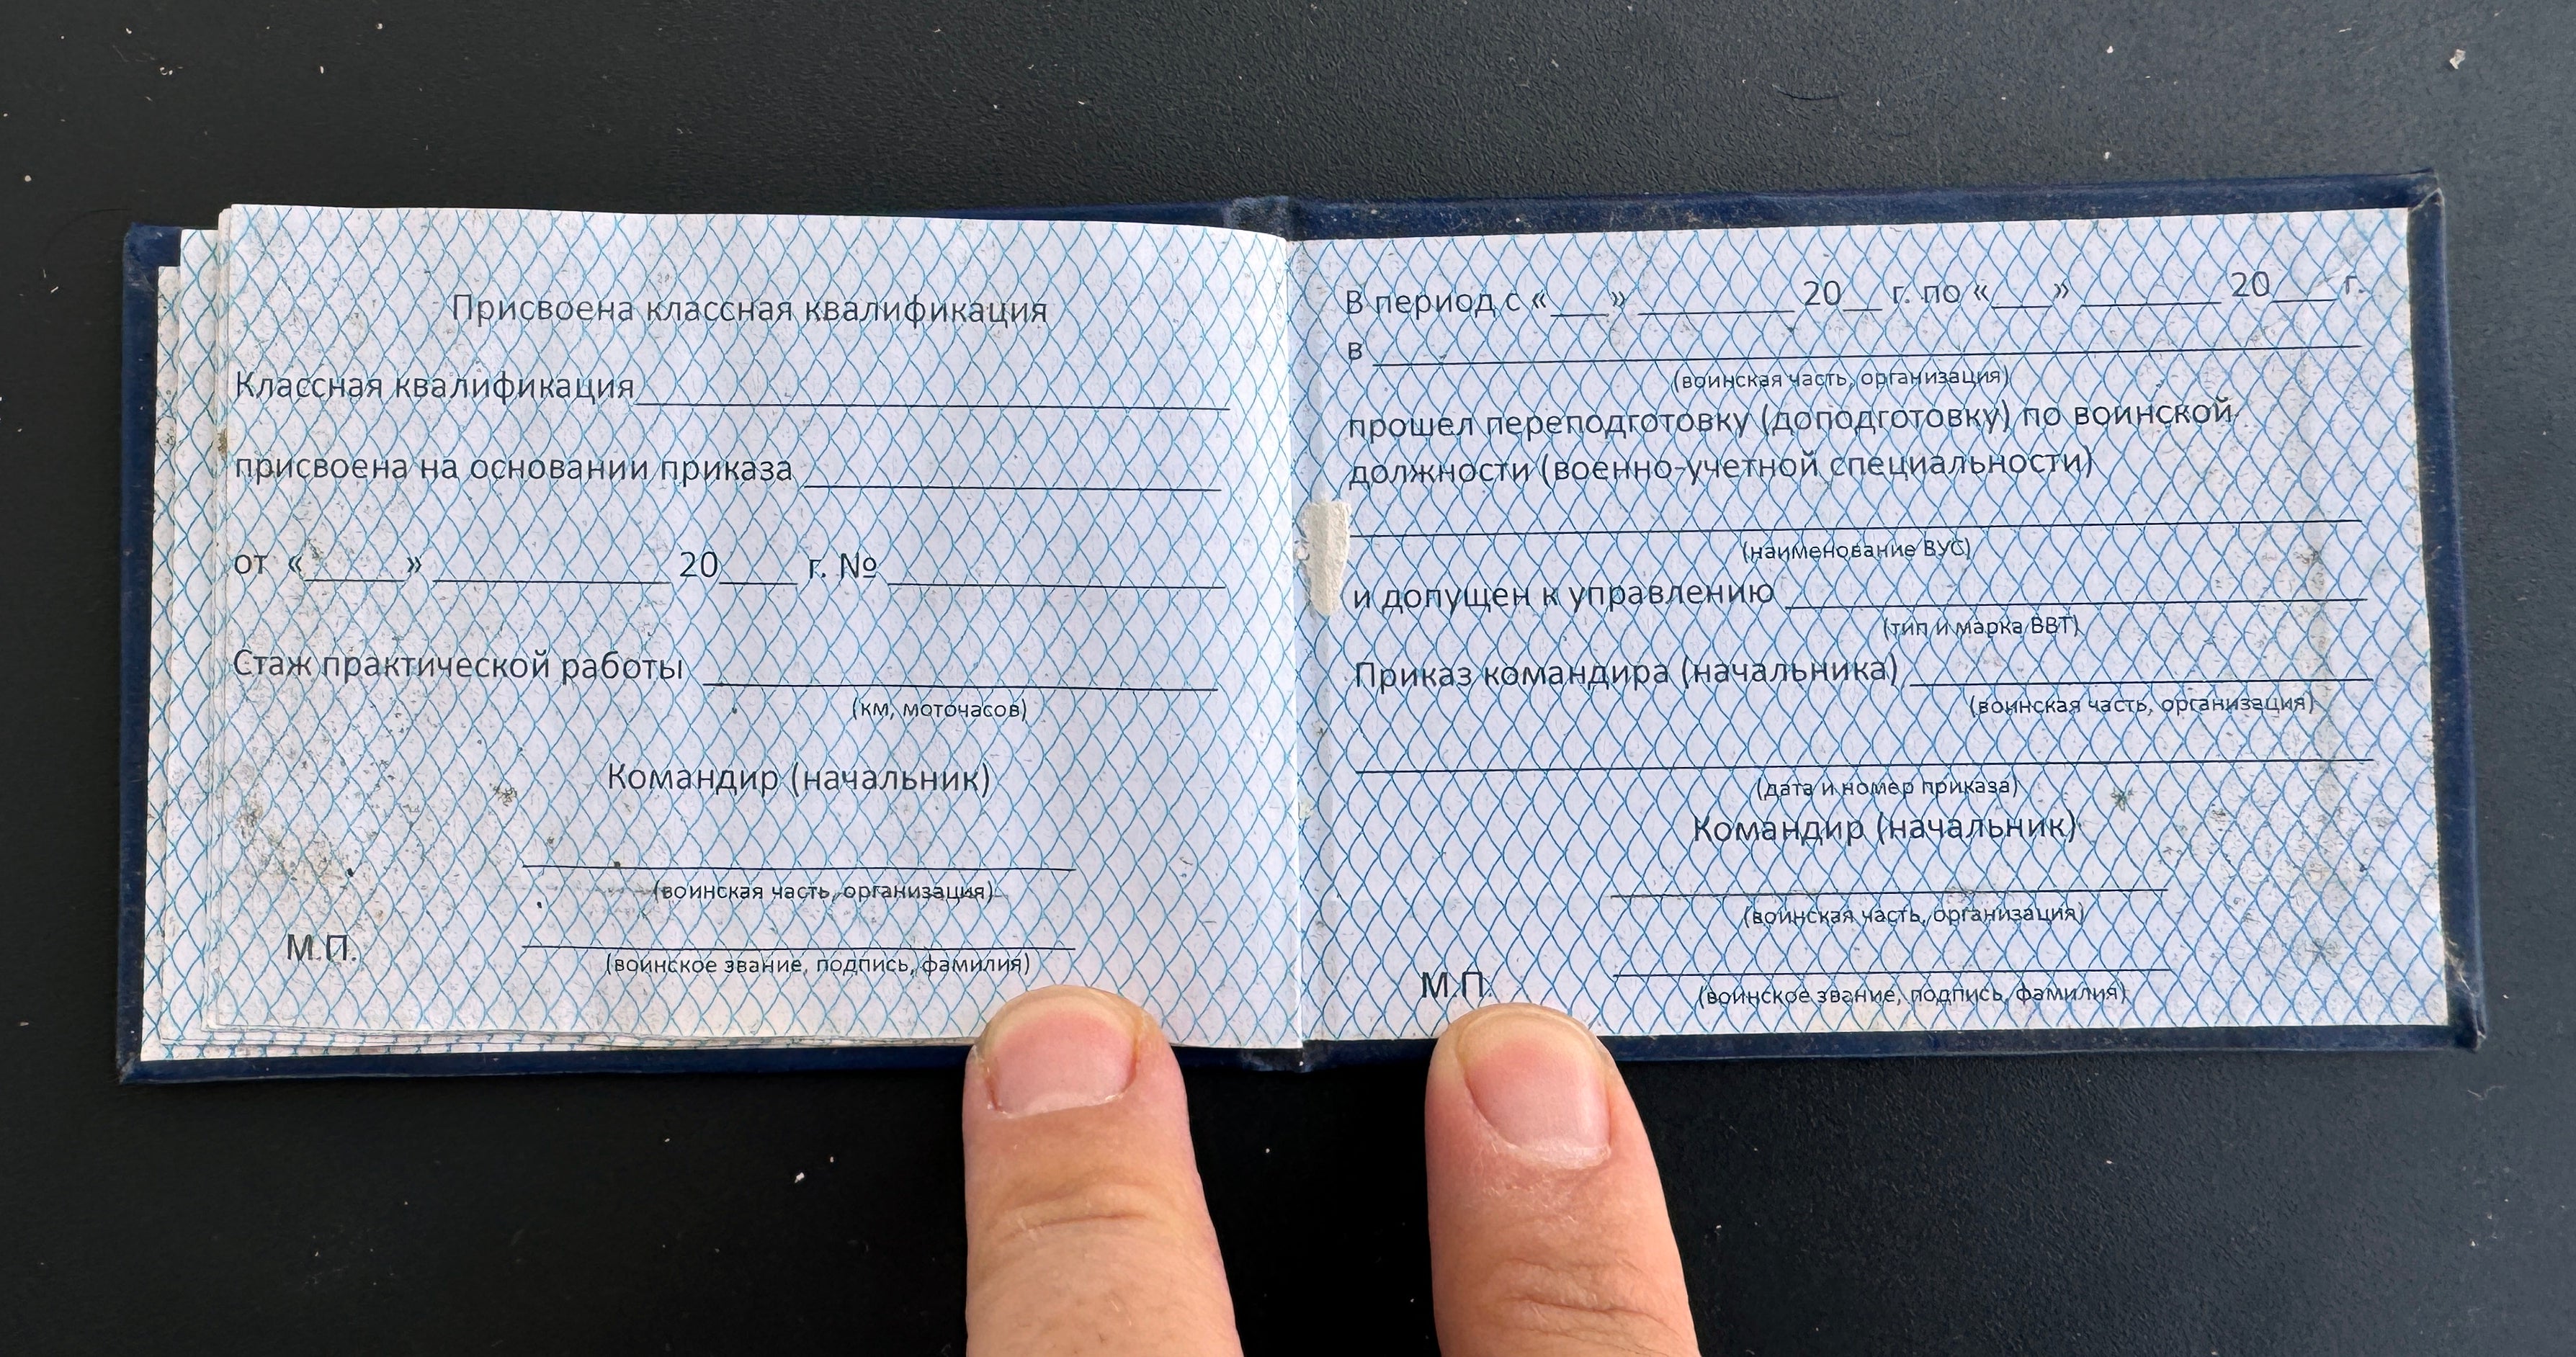 Присвоена классная квалификация
Классная квалификация
присвоена на основании приказа
от «_____» ____________ 20____ г. №
Стаж практической работы
(км, моточасов)
Командир (начальник)
(воинская часть, организация)
М.П.
(воинское звание, подпись, фамилия)
В период с «___» ________ 20__ г. по «___» _______ 20___ г.
в
(воинская часть, организация)
прошел переподготовку (доподготовку) по воинской
должности (военно-учетной специальности)
(наименование ВУС)
и допущен к управлению
(тип и марка ВВТ)
Приказ командира (начальника)
(воинская часть, организация)
(дата и номер приказа)
Командир (начальник)
(воинская часть, организация)
М.П.
(воинское звание, подпись, фамилия)